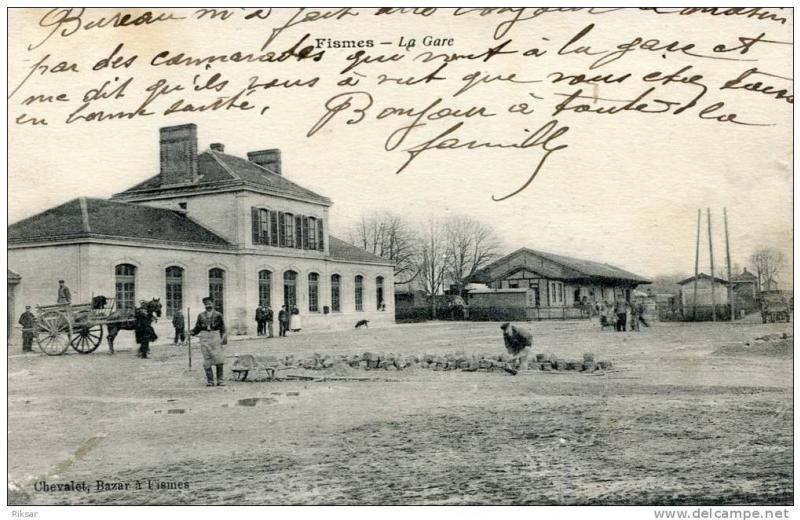 Bureau m'a fait dire bonjour à matin
Fismes — La Gare
par des camarades que vont à la gare et
me dit qu'ils vous a vut que vous chez
en bonne santé, Bonjour à toute la
famille
Chevalet, Bazar à Fismes
Riksar
www.delcampe.net